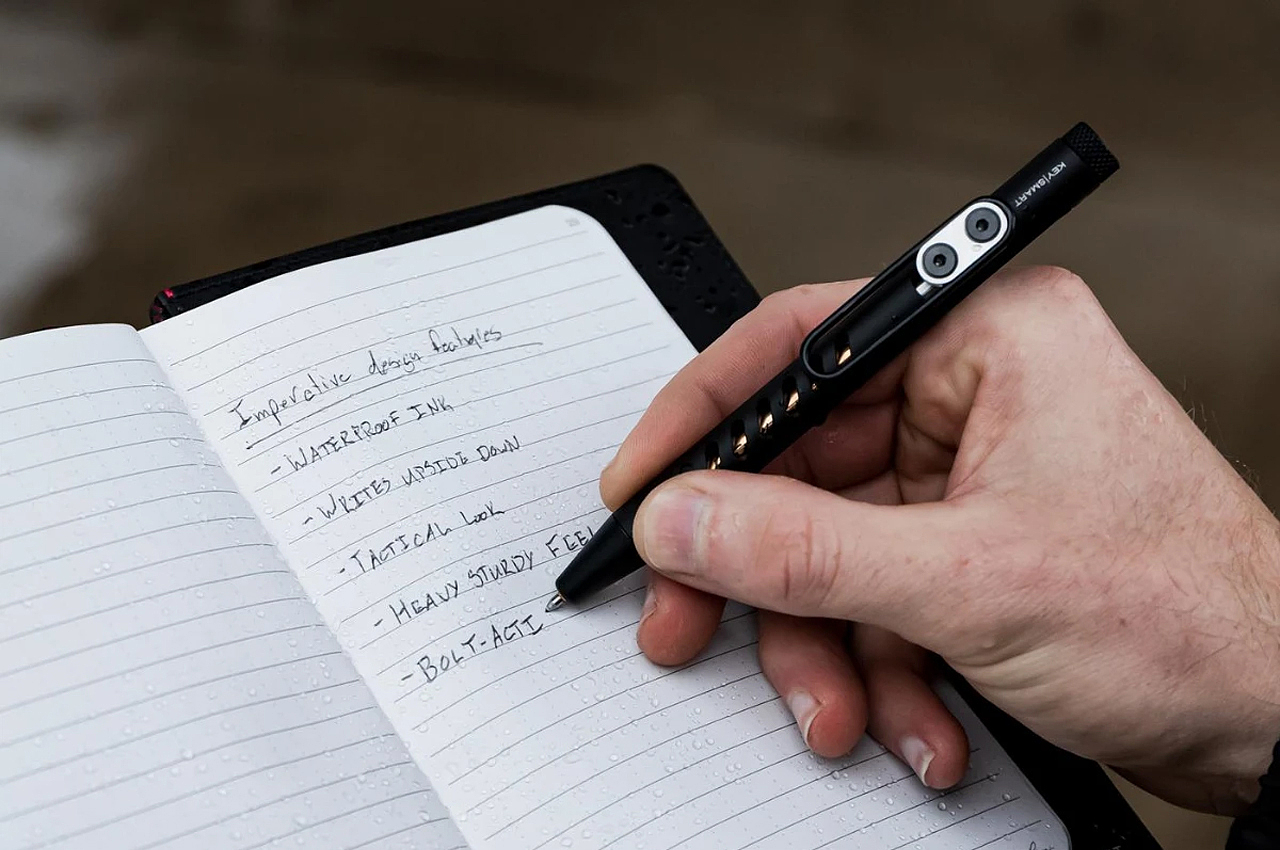 Imperative design features
- WATERPROOF INK
- WRITES UPSIDE DOWN
- TACTICAL LOOK
- HEAVY STURDY FEEL
- BOLT-ACTI
KEY|SMART